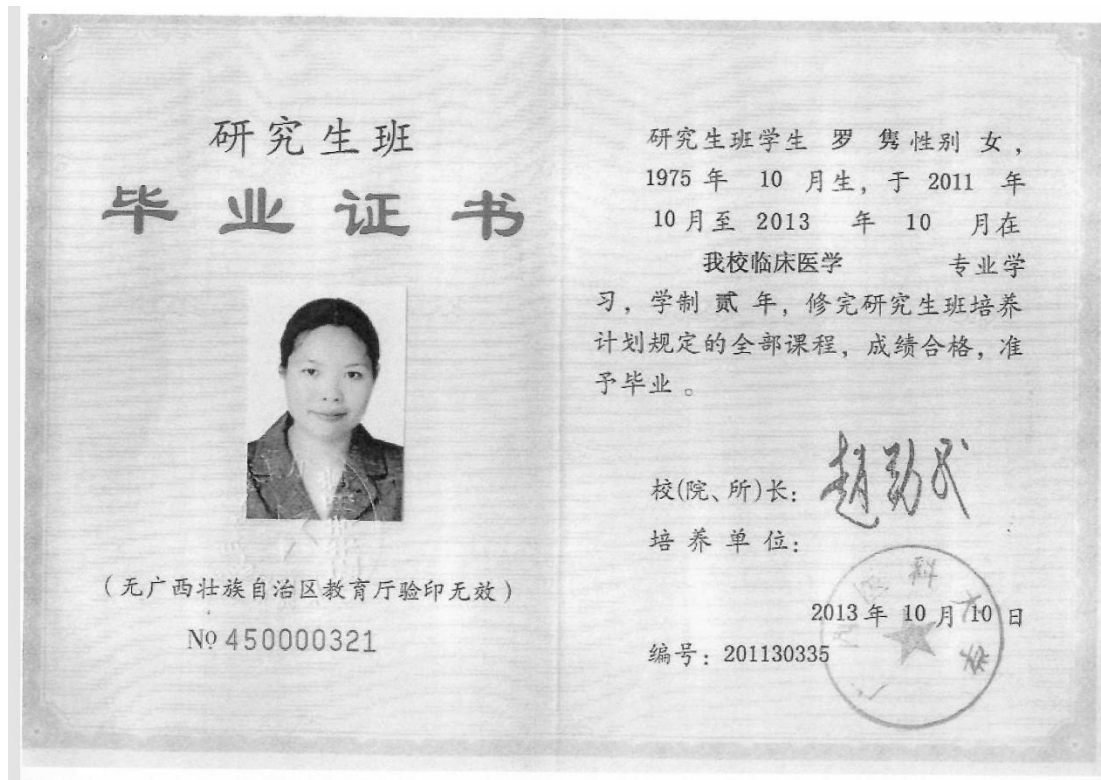 研究生班
毕业证书
(无广西壮族自治区教育厅验印无效)
№ 450000321
研究生班学生 罗 隽 性别 女,
1975 年 10 月生, 于 2011 年
10 月至 2013 年 10 月在
我校临床医学 专业学
习, 学制 贰 年, 修完研究生班培养
计划规定的全部课程, 成绩合格, 准
予毕业。
校(院、所)长:
培 养 单 位:
广西医科大学
2013 年 10 月 10 日
编号: 201130335